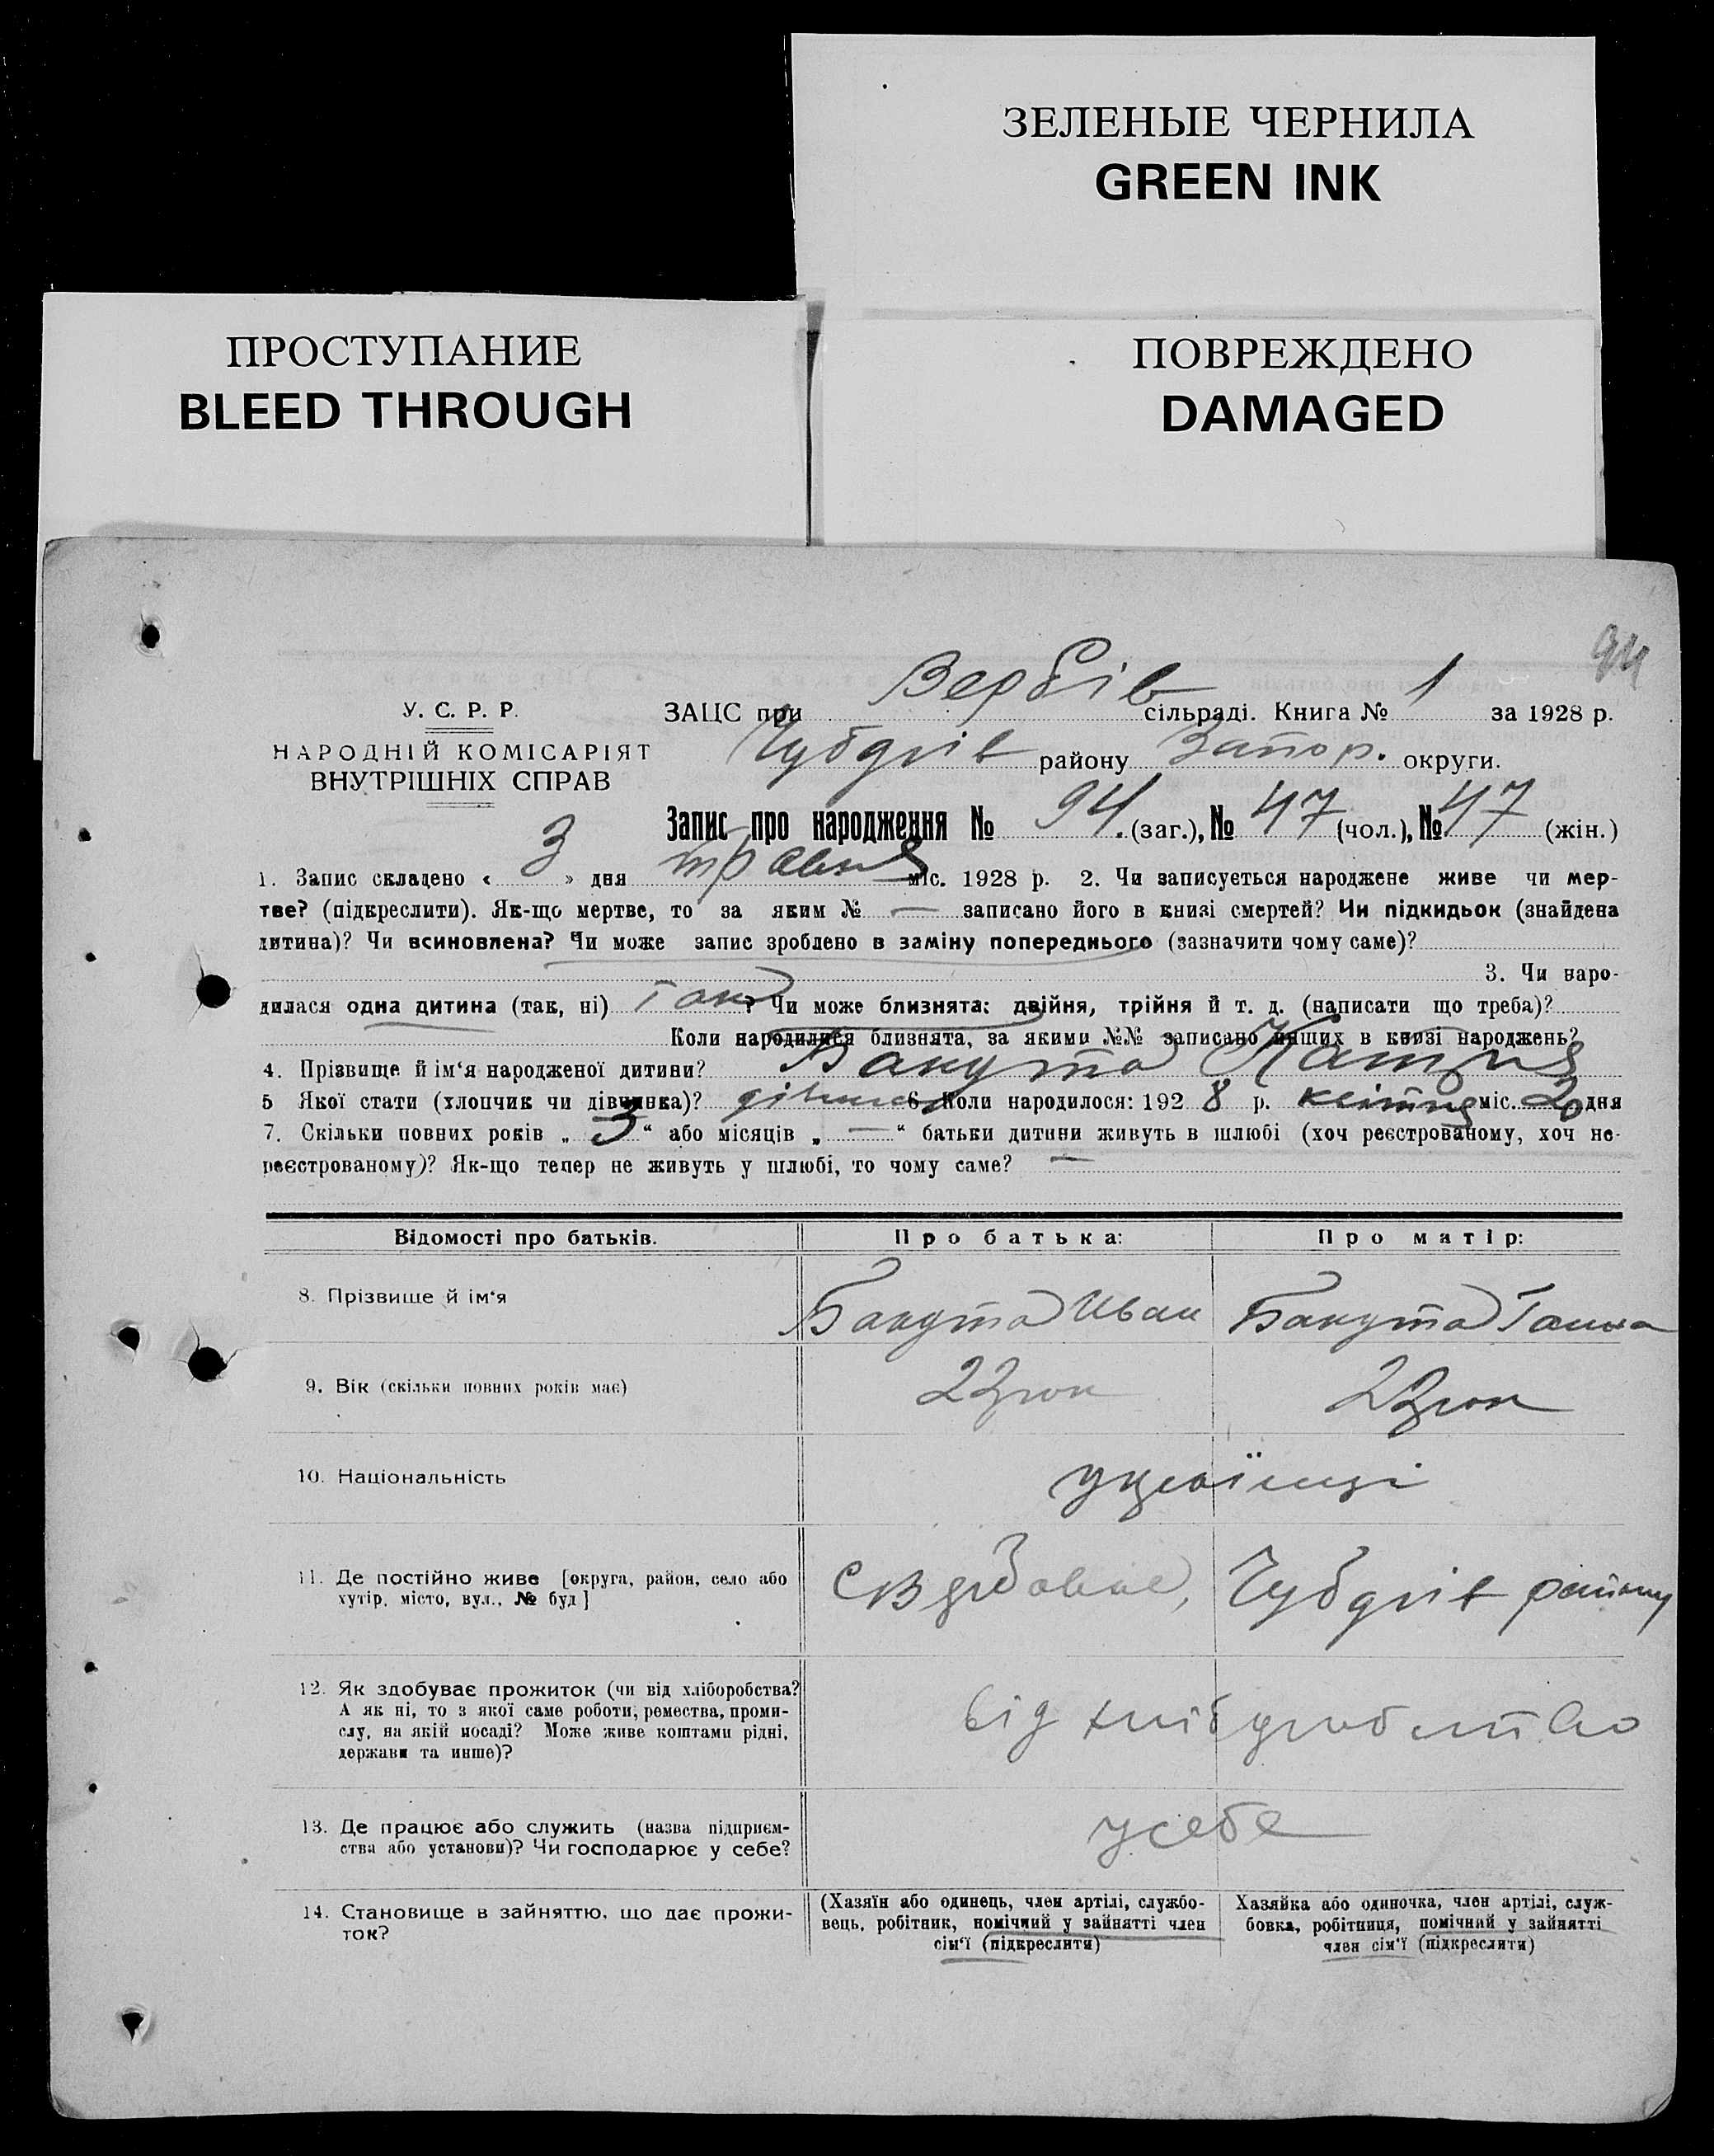 ЗЕЛЕНЫЕ ЧЕРНИЛА
GREEN INK
ПРОСТУПАНИЕ
BLEED THROUGH
ПОВРЕЖДЕНО
DAMAGED
94
У. С. Р. Р.
НАРОДНІЙ КОМІСАРІЯТ
ВНУТРІШНІХ СПРАВ
ЗАЦС при Вербів сільраді. Книга № 1 за 1928 р.
Чубарів району Запор. округи.
Запис про народження № 94 (заг.), № 47 (чол.), № 47 (жін.)
1. Запис складено « 3 » дня травня міс. 1928 р. 2. Чи записується народжене живе чи мер-
тве? (підкреслити). Як-що мертве, то за яким № — записано його в книзі смертей? Чи підкидьок (знайдена
дитина)? Чи всиновлена? Чи може запис зроблено в заміну попереднього (зазначити чому саме)?
3. Чи наро-
дилася одна дитина (так, ні) так ? Чи може близнята: двійня, трійня й т. д. (написати що треба)?
Коли народилися близнята, за якими №№ записано инших в книзі народжень?
4. Прізвище й ім'я народженої дитини? Бакута Катря
5 Якої стати (хлопчик чи дівчинка)? дівчинка 6. Коли народилося: 192 8 р. квітня міс. 20 дня
7. Скільки повних років „ 3 “ або місяців „ — “ батьки дитини живуть в шлюбі (хоч реєстрованому, хоч не-
реєстрованому)? Як-що тепер не живуть у шлюбі, то чому саме? —
Відомості про батьків. Про батька: Про матір:
8. Прізвище й ім'я Бакута Иван Бакута Ганна
9. Вік (скільки повних років має) 23 рок 23 рок
10. Національність українці
11. Де постійно живе [округа, район, село або
хутір, місто, вул., № буд] Чубарів району
12. Як здобуває прожиток (чи від хліборобства?
А як ні, то з якої саме роботи, ремества, проми-
слу, на якій посаді? Може живе коштами рідні,
держави та инше)?
від хліборобства
13. Де працює або служить (назва підприєм-
ства або установи)? Чи господарює у себе?
у себе
14. Становище в зайняттю, що дає прожи-
ток?
(Хазяїн або одинець, член артілі, службо-
вець, робітник, помічний у зайнятті член
сім'ї (підкреслити)
Хазяйка або одиночка, член артілі, служ-
бовка, робітниця, помічний у зайнятті
член сім'ї (підкреслити)